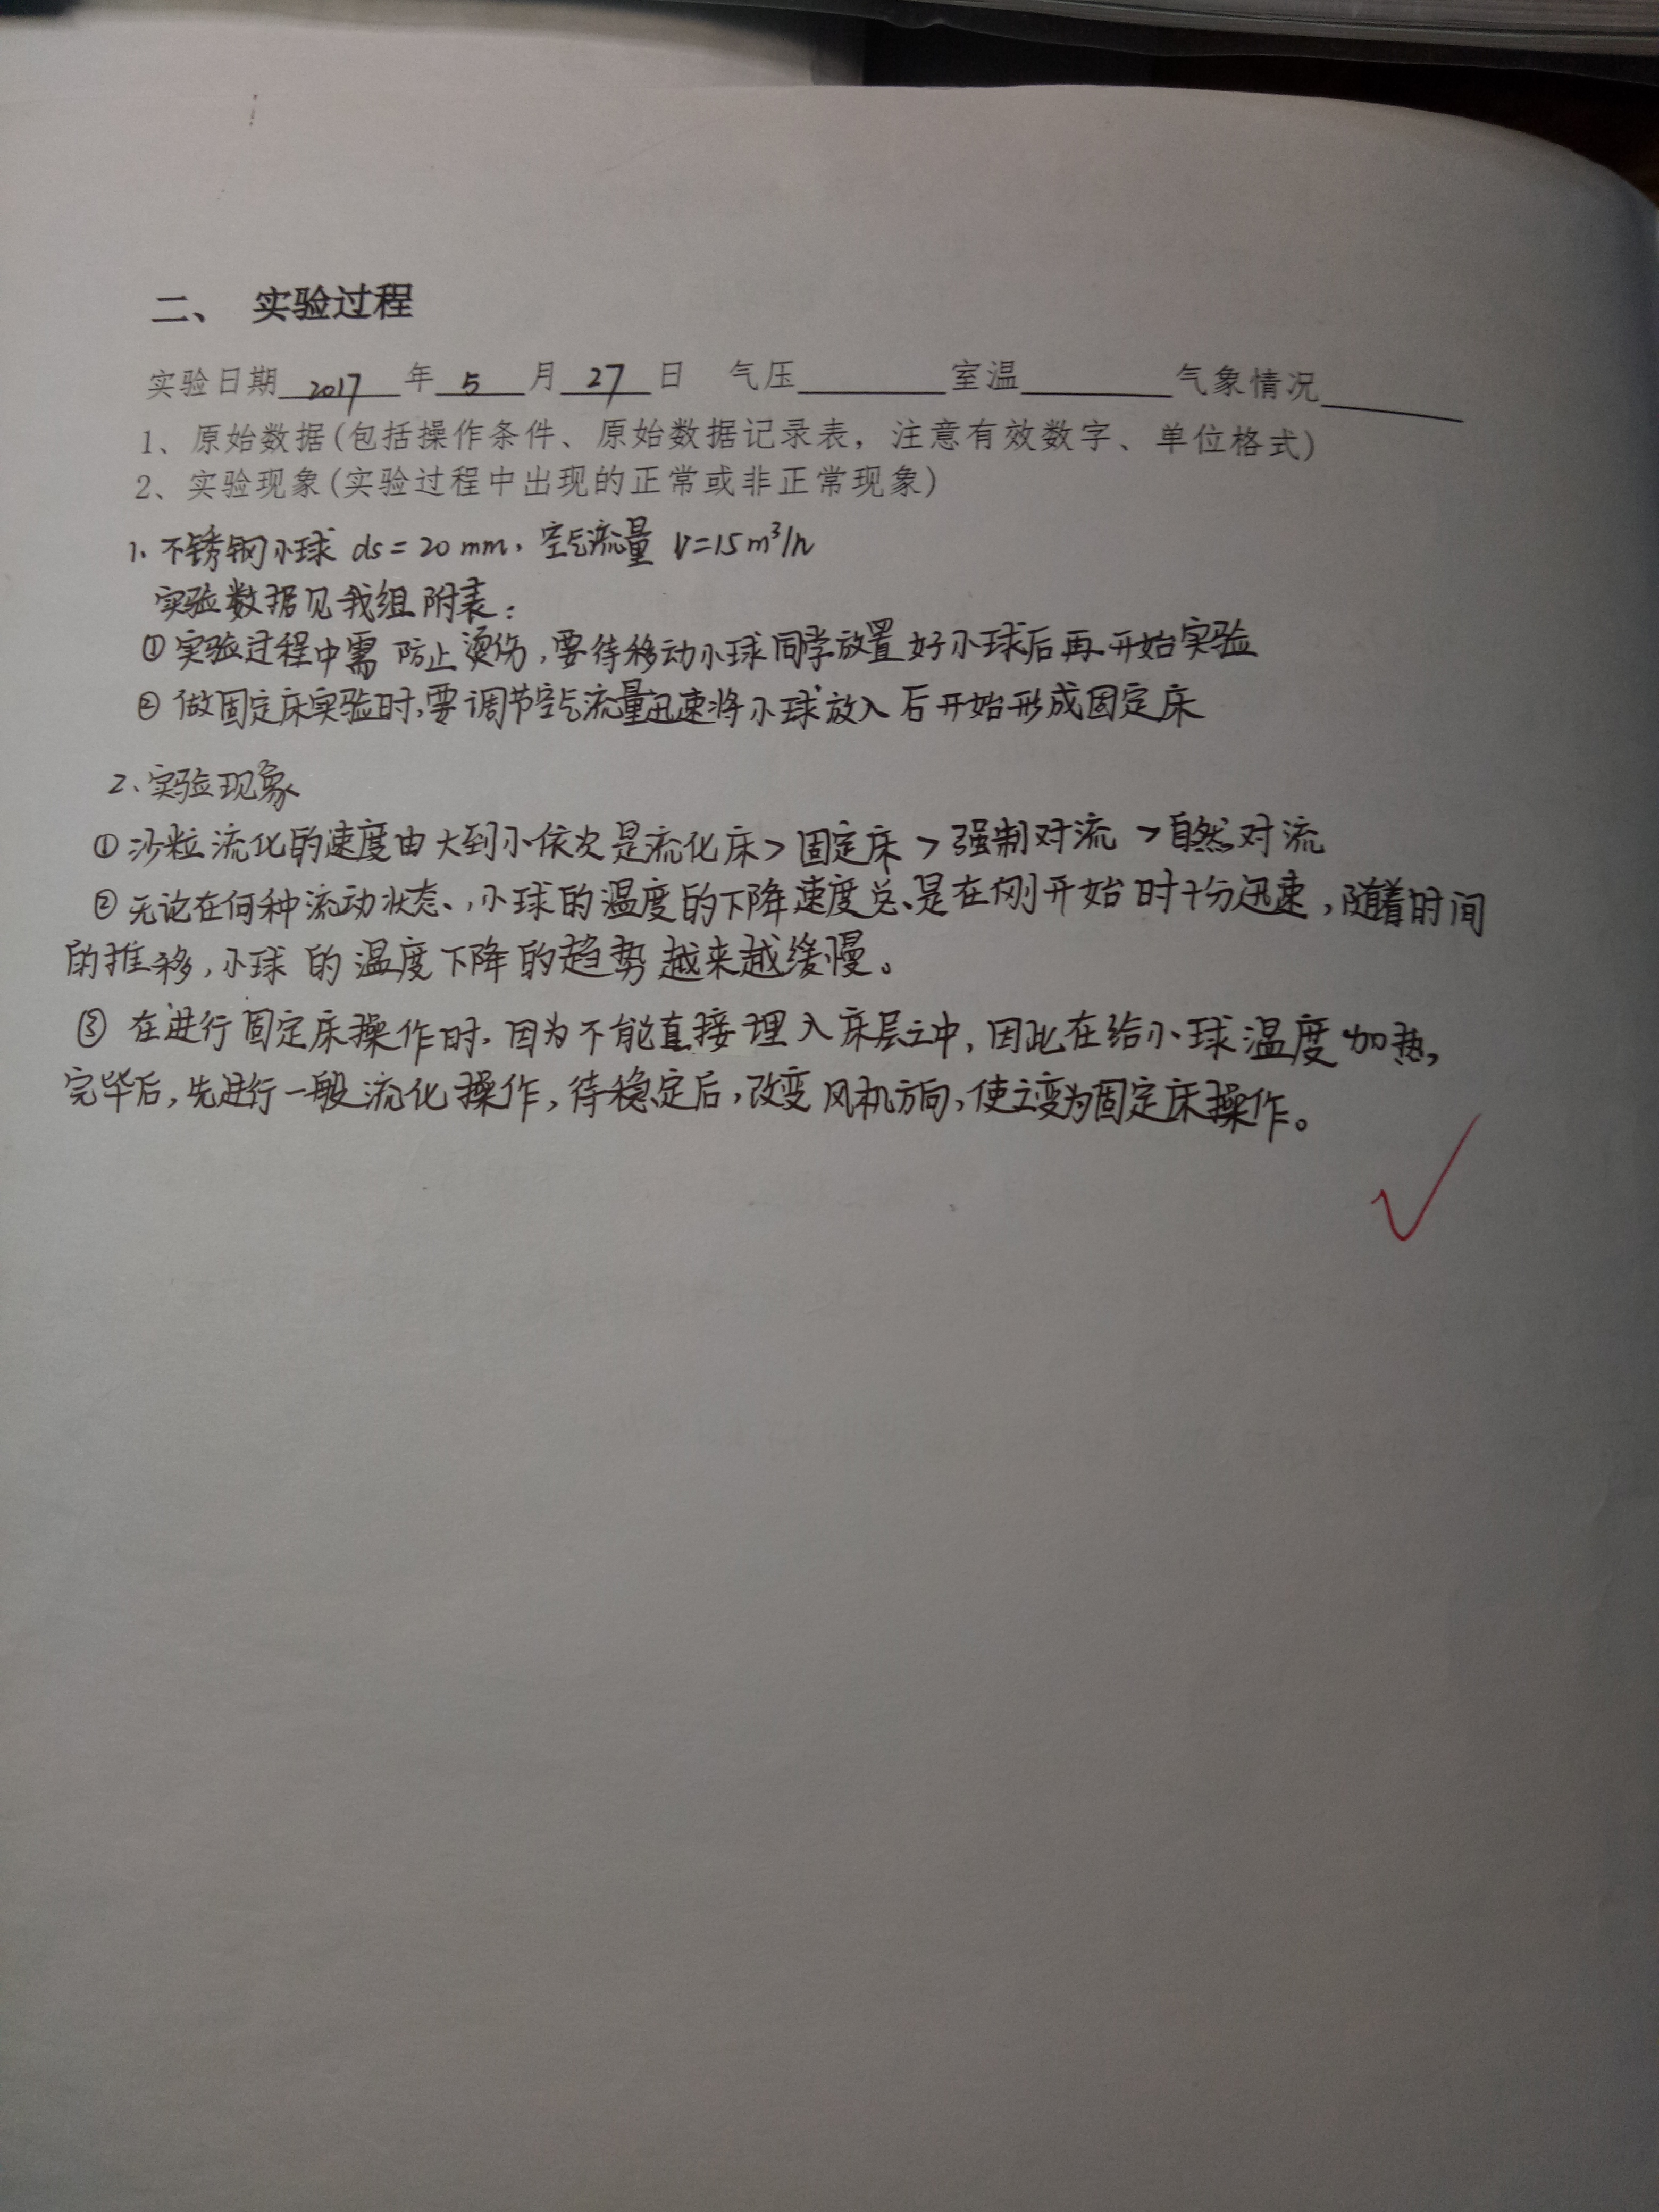 二、 实验过程
实验日期 2017 年 5 月 27 日 气压 室温 气象情况
1、原始数据(包括操作条件、原始数据记录表，注意有效数字、单位格式)
2、实验现象(实验过程中出现的正常或非正常现象)
1. 不锈钢小球 ds=20mm，空气流量 V=15m³/h
实验数据见我组附表：
①实验过程中需防止烫伤，要待移动小球同学放置好小球后再开始实验
②做固定床实验时，要调节空气流量迅速将小球放入后开始形成固定床
2、实验现象
①沙粒流化的速度由大到小依次是流化床>固定床>强制对流>自然对流
②无论在何种流动状态，小球的温度的下降速度总是在刚开始时十分迅速，随着时间
的推移，小球的温度下降的趋势越来越缓慢。
③在进行固定床操作时，因为不能直接埋入床层之中，因此在给小球温度加热，
完毕后，先进行一般流化操作，待稳定后，改变风机方向，使立变为固定床操作。